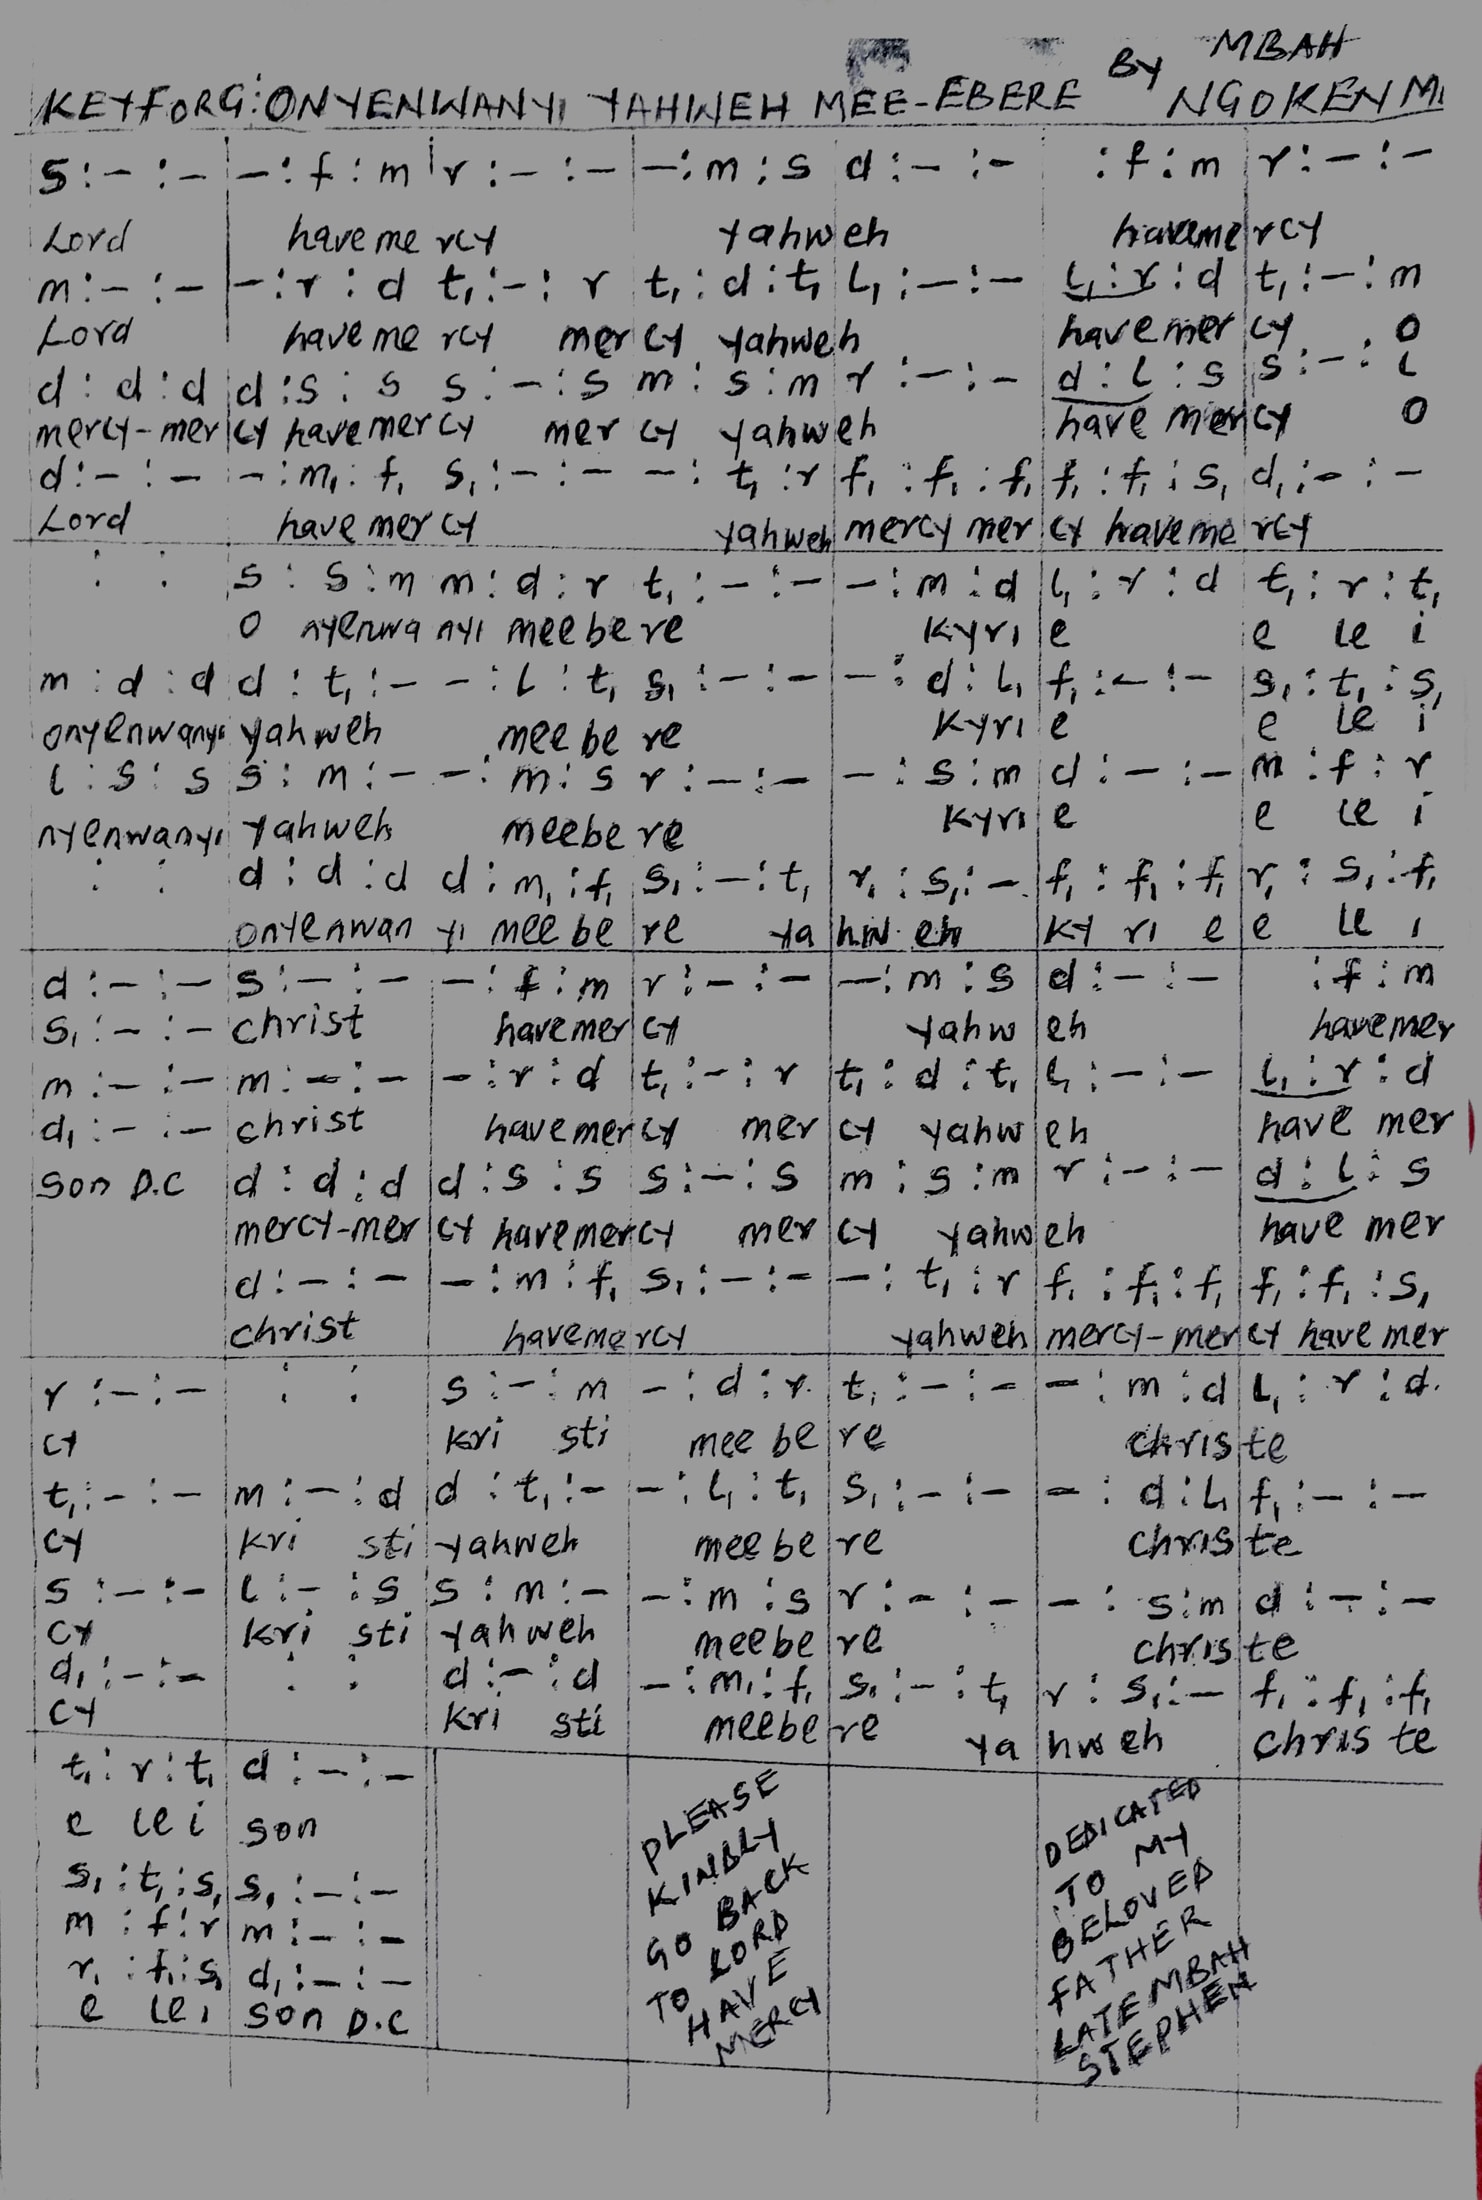 BY MBAH
KEY F OR G: ONYENWANYI YAHWEH MEE-EBERE NGOKENMI
s : – : – | – : f : m | r : – : – | – : m : s | d : – : – | : f : m | r : – : –
Lord have me rcy Yahweh have me rcy
m : – : – | – : r : d | t₁ : – : r | t₁ : d : t₁ | l₁ : – : – | l₁ : r : d | t₁ : – : m
Lord have me rcy mer cy yahweh have mer cy O
d : d : d | d : s : s | s : – : s | m : s : m | r : – : – | d : l : s | s : – : l
mercy-mer cy have mercy mer cy yahweh have mercy O
d : – : – | – : m₁ : f₁ | s₁ : – : – | – : t₁ : r | f₁ : f₁ : f₁ | f₁ : f₁ : s₁ | d₁ : – : –
Lord have mercy yahweh mercy mer cy have me rcy
: : | s : s : m | m : d : r | t₁ : – : – | – : m : d | l₁ : r : d | t₁ : r : t₁
O nyenwa nyi mee be re Kyri e e le i
m : d : d | d : t₁ : – | – : l : t₁ | s₁ : – : – | – : d : l₁ | f₁ : – : – | s₁ : t₁ : s₁
onyenwanyi yahweh mee be re Kyri e e le i
l : s : s | s : m : – | – : m : s | r : – : – | – : s : m | d : – : – | m : f : r
nyenwanyi yahweh meebe re Kyri e e le i
: : | d : d : d | d : m₁ : f₁ | s₁ : – : t₁ | r₁ : s₁ : – | f₁ : f₁ : f₁ | r₁ : s₁ : f₁
onyenwan yi mee be re ya hw eh ky ri e e le i
d : – : – | s : – : – | – : f : m | r : – : – | – : m : s | d : – : – | : f : m
s₁ : – : – christ have mer cy yahw eh have mer
m : – : – | m : – : – | – : r : d | t₁ : – : r | t₁ : d : t₁ | l₁ : – : – | l₁ : r : d
d₁ : – : – christ have mercy mer cy yahw eh have mer
son D.C d : d : d | d : s : s | s : – : s | m : s : m | r : – : – | d : l : s
mercy-mer cy have mercy mer cy yahweh have mer
d : – : – | – : m : f₁ | s₁ : – : – | – : t₁ : r | f₁ : f₁ : f₁ | f₁ : f₁ : s₁
christ have mercy yahweh mercy-mercy have mer
r : – : – | : : | s : – : m | – : d : r | t₁ : – : – | – : m : d | l₁ : r : d
cy kri sti mee be re christe
t₁ : – : – | m : – : d | d : t₁ : – | – : l₁ : t₁ | s₁ : – : – | – : d : l₁ | f₁ : – : –
cy kri sti yahweh mee be re christe
s : – : – | l : – : s | s : m : – | – : m : s | r : – : – | – : s : m | d : – : –
cy kri sti yahweh meebe re christe
d₁ : – : – | : : | d : – : d | – : m₁ : f₁ | s₁ : – : t₁ | r : s₁ : – | f₁ : f₁ : f₁
cy kri sti meebe re ya hw eh chris te
t₁ : r : t₁ | d : – : –
e le i son
s₁ : t₁ : s₁ | s₁ : – : –
m : f : r | m : – : –
r₁ : f₁ : s₁ | d₁ : – : –
e le i son D.C
PLEASE
KINDLY
GO BACK
TO LORD
HAVE
MERCY
DEDICATED
TO MY
BELOVED
FATHER
LATE MBAH
STEPHEN